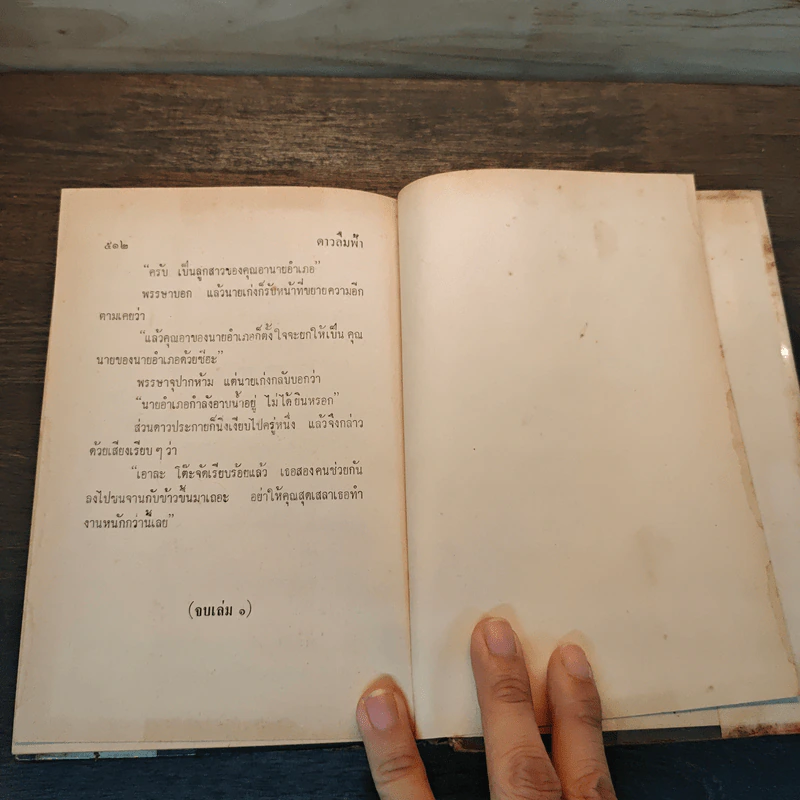 ๕๑๒ ดาวลืมฟ้า
“ครับ เป็นลูกสาวของคุณอานายอำเภอ”
พรรษาบอก แล้วนายเก่งก็รับหน้าที่ขยายความอีก
ตามเคยว่า
“แล้วคุณอาของนายอำเภอก็ตั้งใจจะยกให้เป็น คุณ
นายของนายอำเภอด้วยซีฮะ”
พรรษาจุปากห้าม แต่นายเก่งกลับบอกว่า
“นายอำเภอกำลังอาบน้ำอยู่ ไม่ได้ยินหรอก”
ส่วนดาวประกายก็นิ่งเงียบไปครู่หนึ่ง แล้วจึงกล่าว
ด้วยเสียงเรียบ ๆ ว่า
“เอาละ โต๊ะจัดเรียบร้อยแล้ว เธอสองคนช่วยกัน
ลงไปขนจานกับข้าวขึ้นมาเถอะ อย่าให้คุณสุดเสลาเธอทำ
งานหนักกว่านี้เลย”
(จบเล่ม ๑)